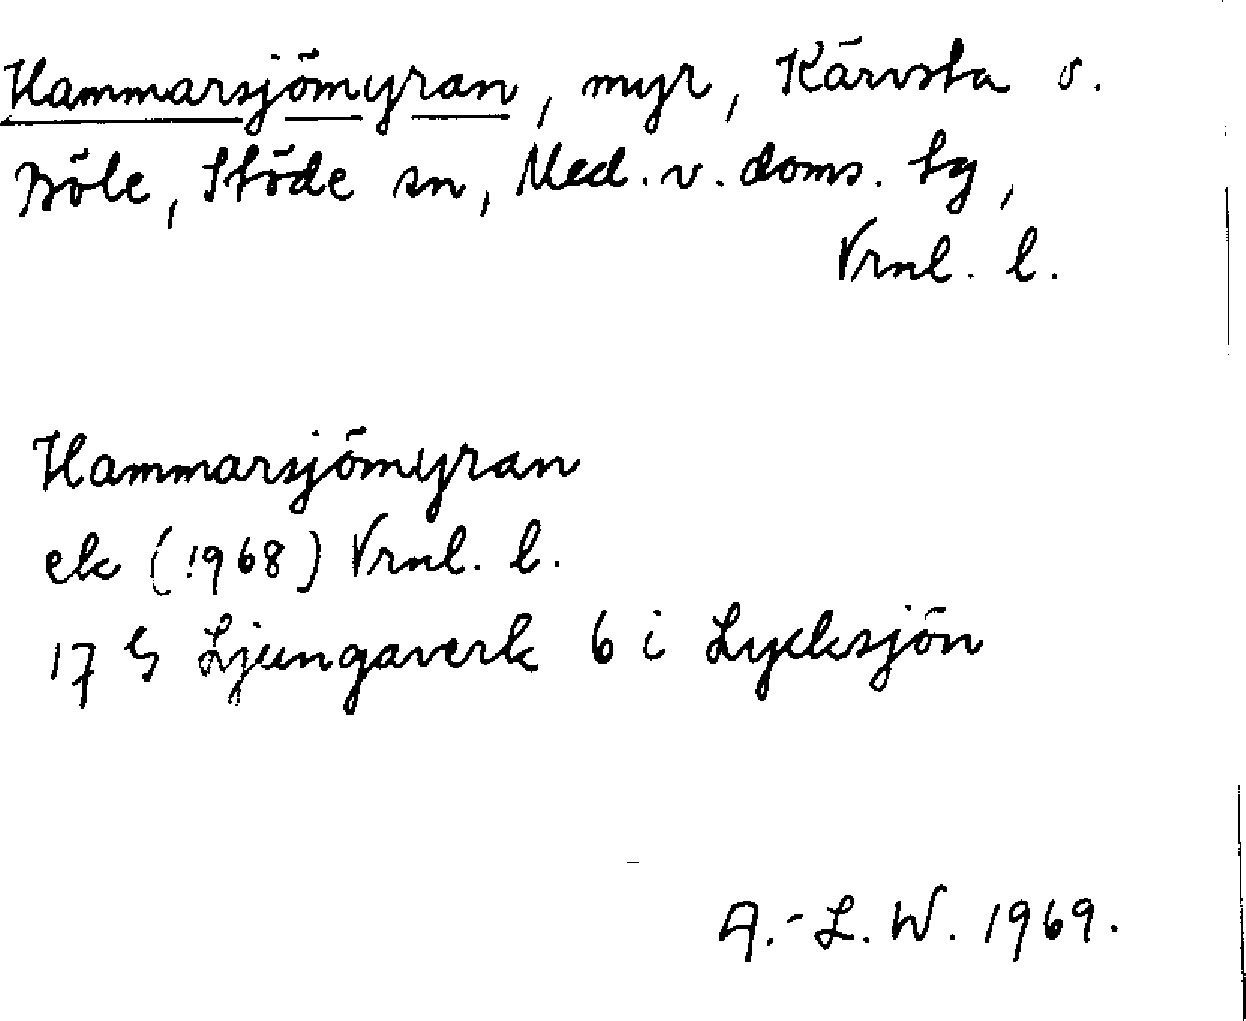 Hammarsjömyran, myr, Kärvsta o.
Böle, Stöde sn, Med. v. doms. tg,
Vrnl. l.
Hammarsjömyran
ek (1968) Vrnl. l.
17 G Ljungaverk 6 i Lycksjön
A.-L. W. 1969.